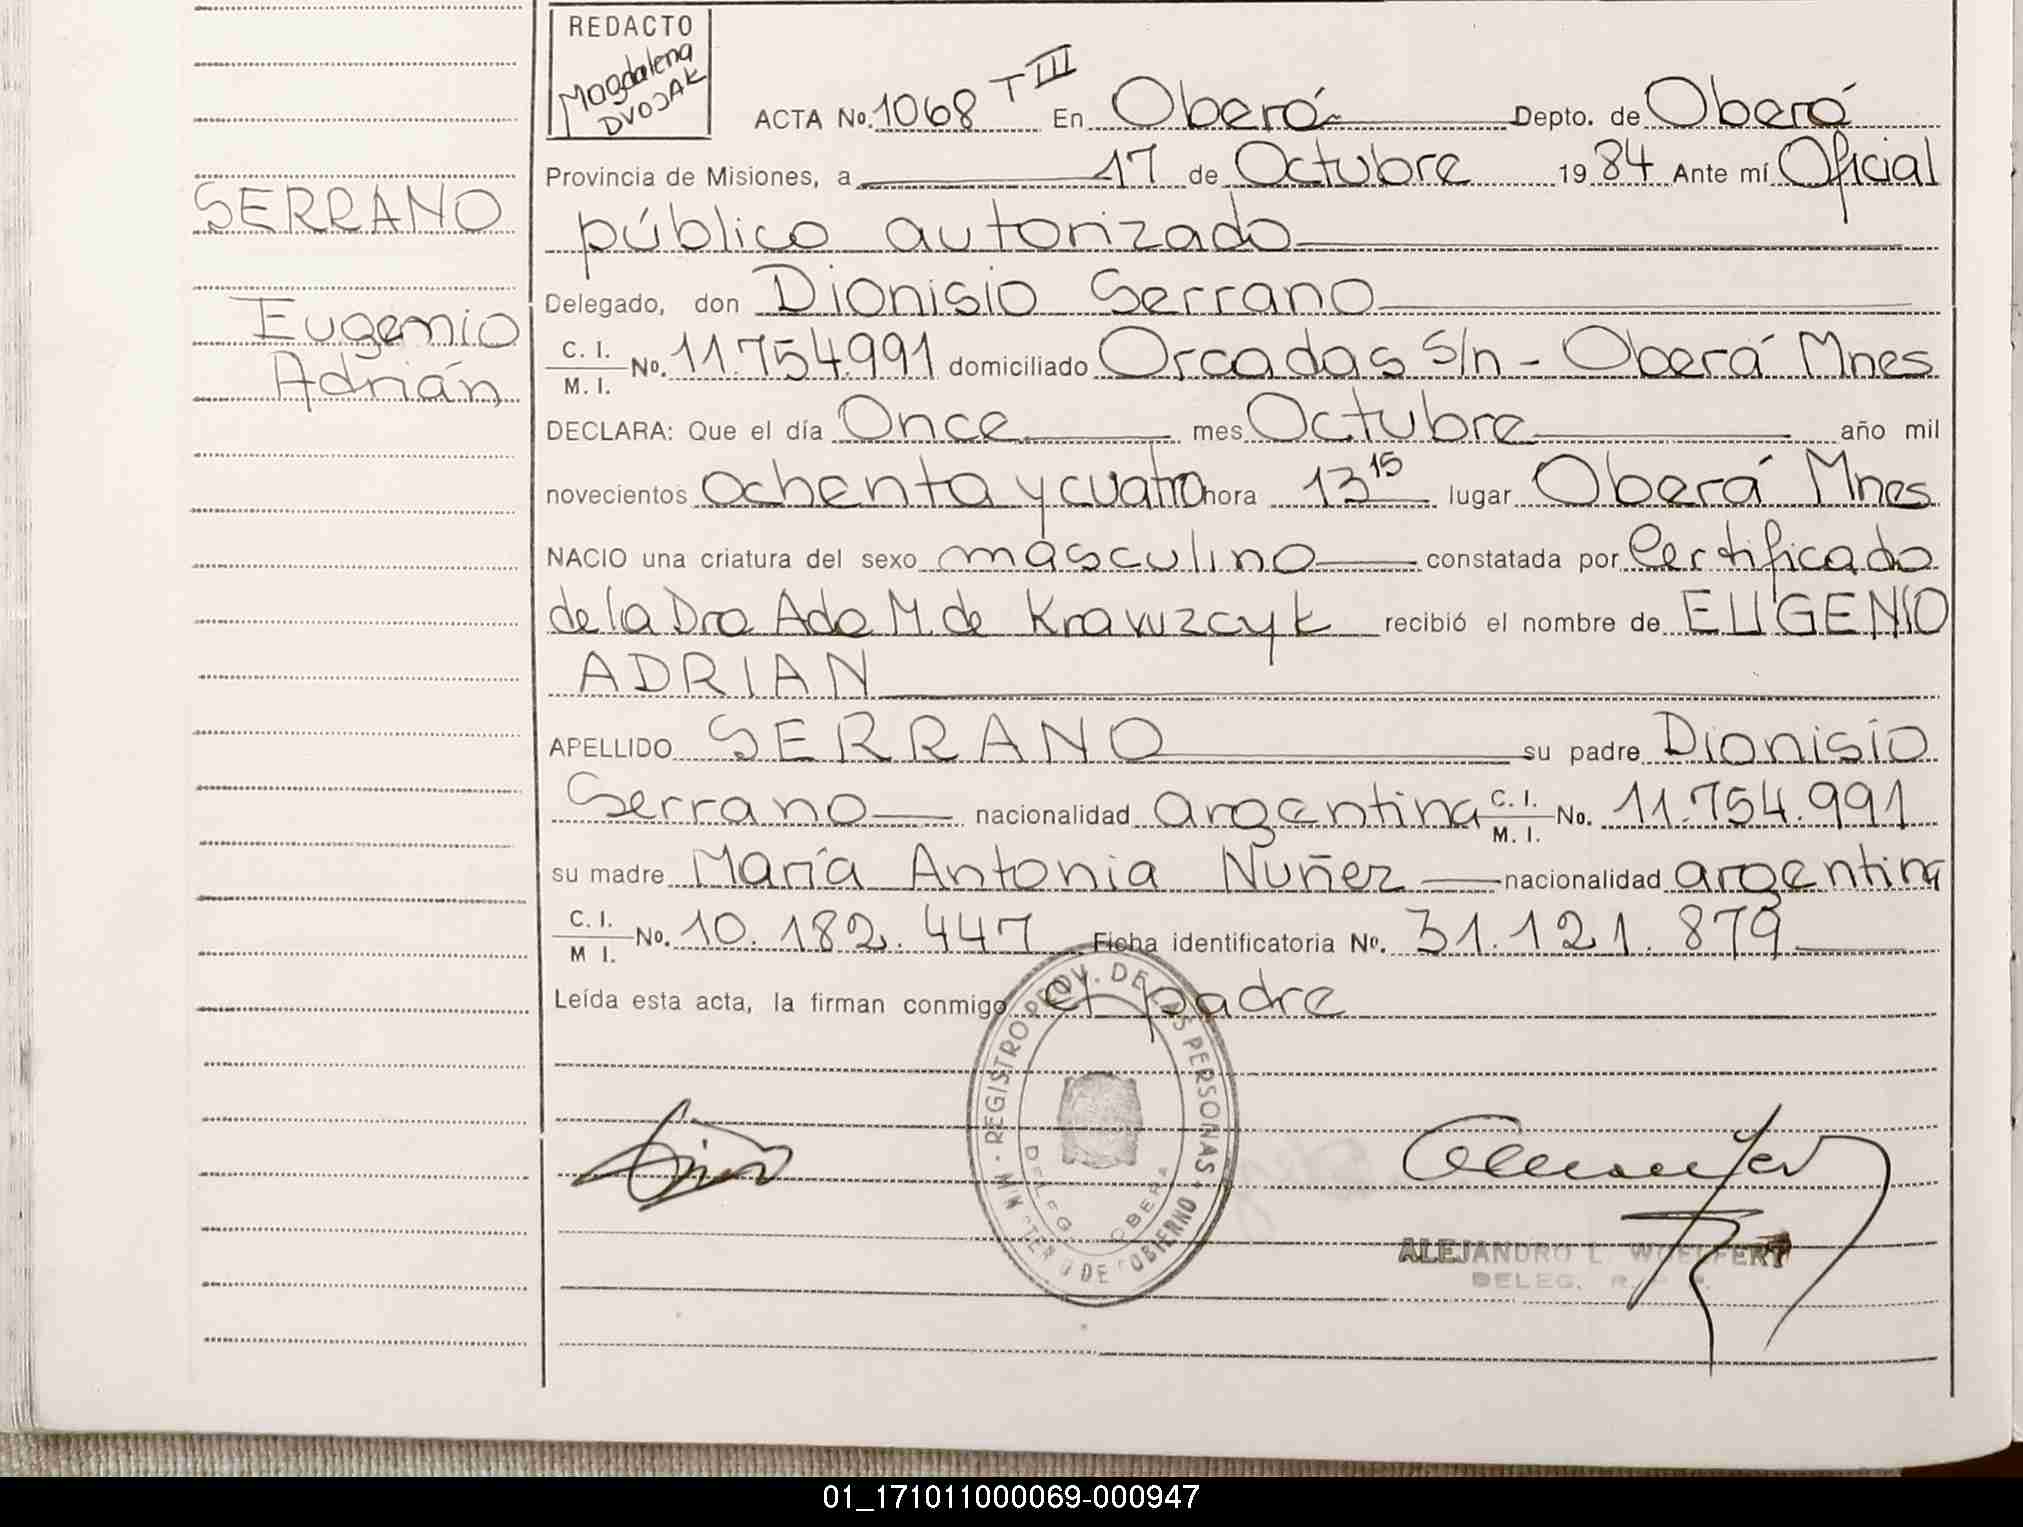 REDACTO
Magdalena
DVOJAK
ACTA No. 1068 T III En Oberá Depto. de Oberá
Provincia de Misiones, a 17 de Octubre 1984 Ante mí Oficial
SERRANO
público autorizado
Delegado, don Dionisio Serrano
Eugenio
Adrián
C. I.
M. I. No. 11.754.991 domiciliado Orcadas s/n - Oberá Mnes
DECLARA: Que el día Once mes Octubre año mil
novecientos ochenta y cuatro hora 13 15 lugar Oberá Mnes
NACIO una criatura del sexo másculino constatada por Certificado
de la Dra Ada M. de Kravuzcyk recibió el nombre de EUGENIO
ADRIAN
APELLIDO SERRANO su padre Dionisio
Serrano nacionalidad argentina C. I. M. I. No. 11.754.991
su madre María Antonia Nuñez nacionalidad argentina
C. I. M I. No. 10.182.447 Ficha identificatoria No. 31.121.879
Leída esta acta, la firman conmigo el padre
REGISTRO PROV. DE LAS PERSONAS
MINISTERIO DE GOBIERNO
DELEG. OBERA
ALEJANDRO L. WOELFERT
DELEG.
01_171011000069-000947